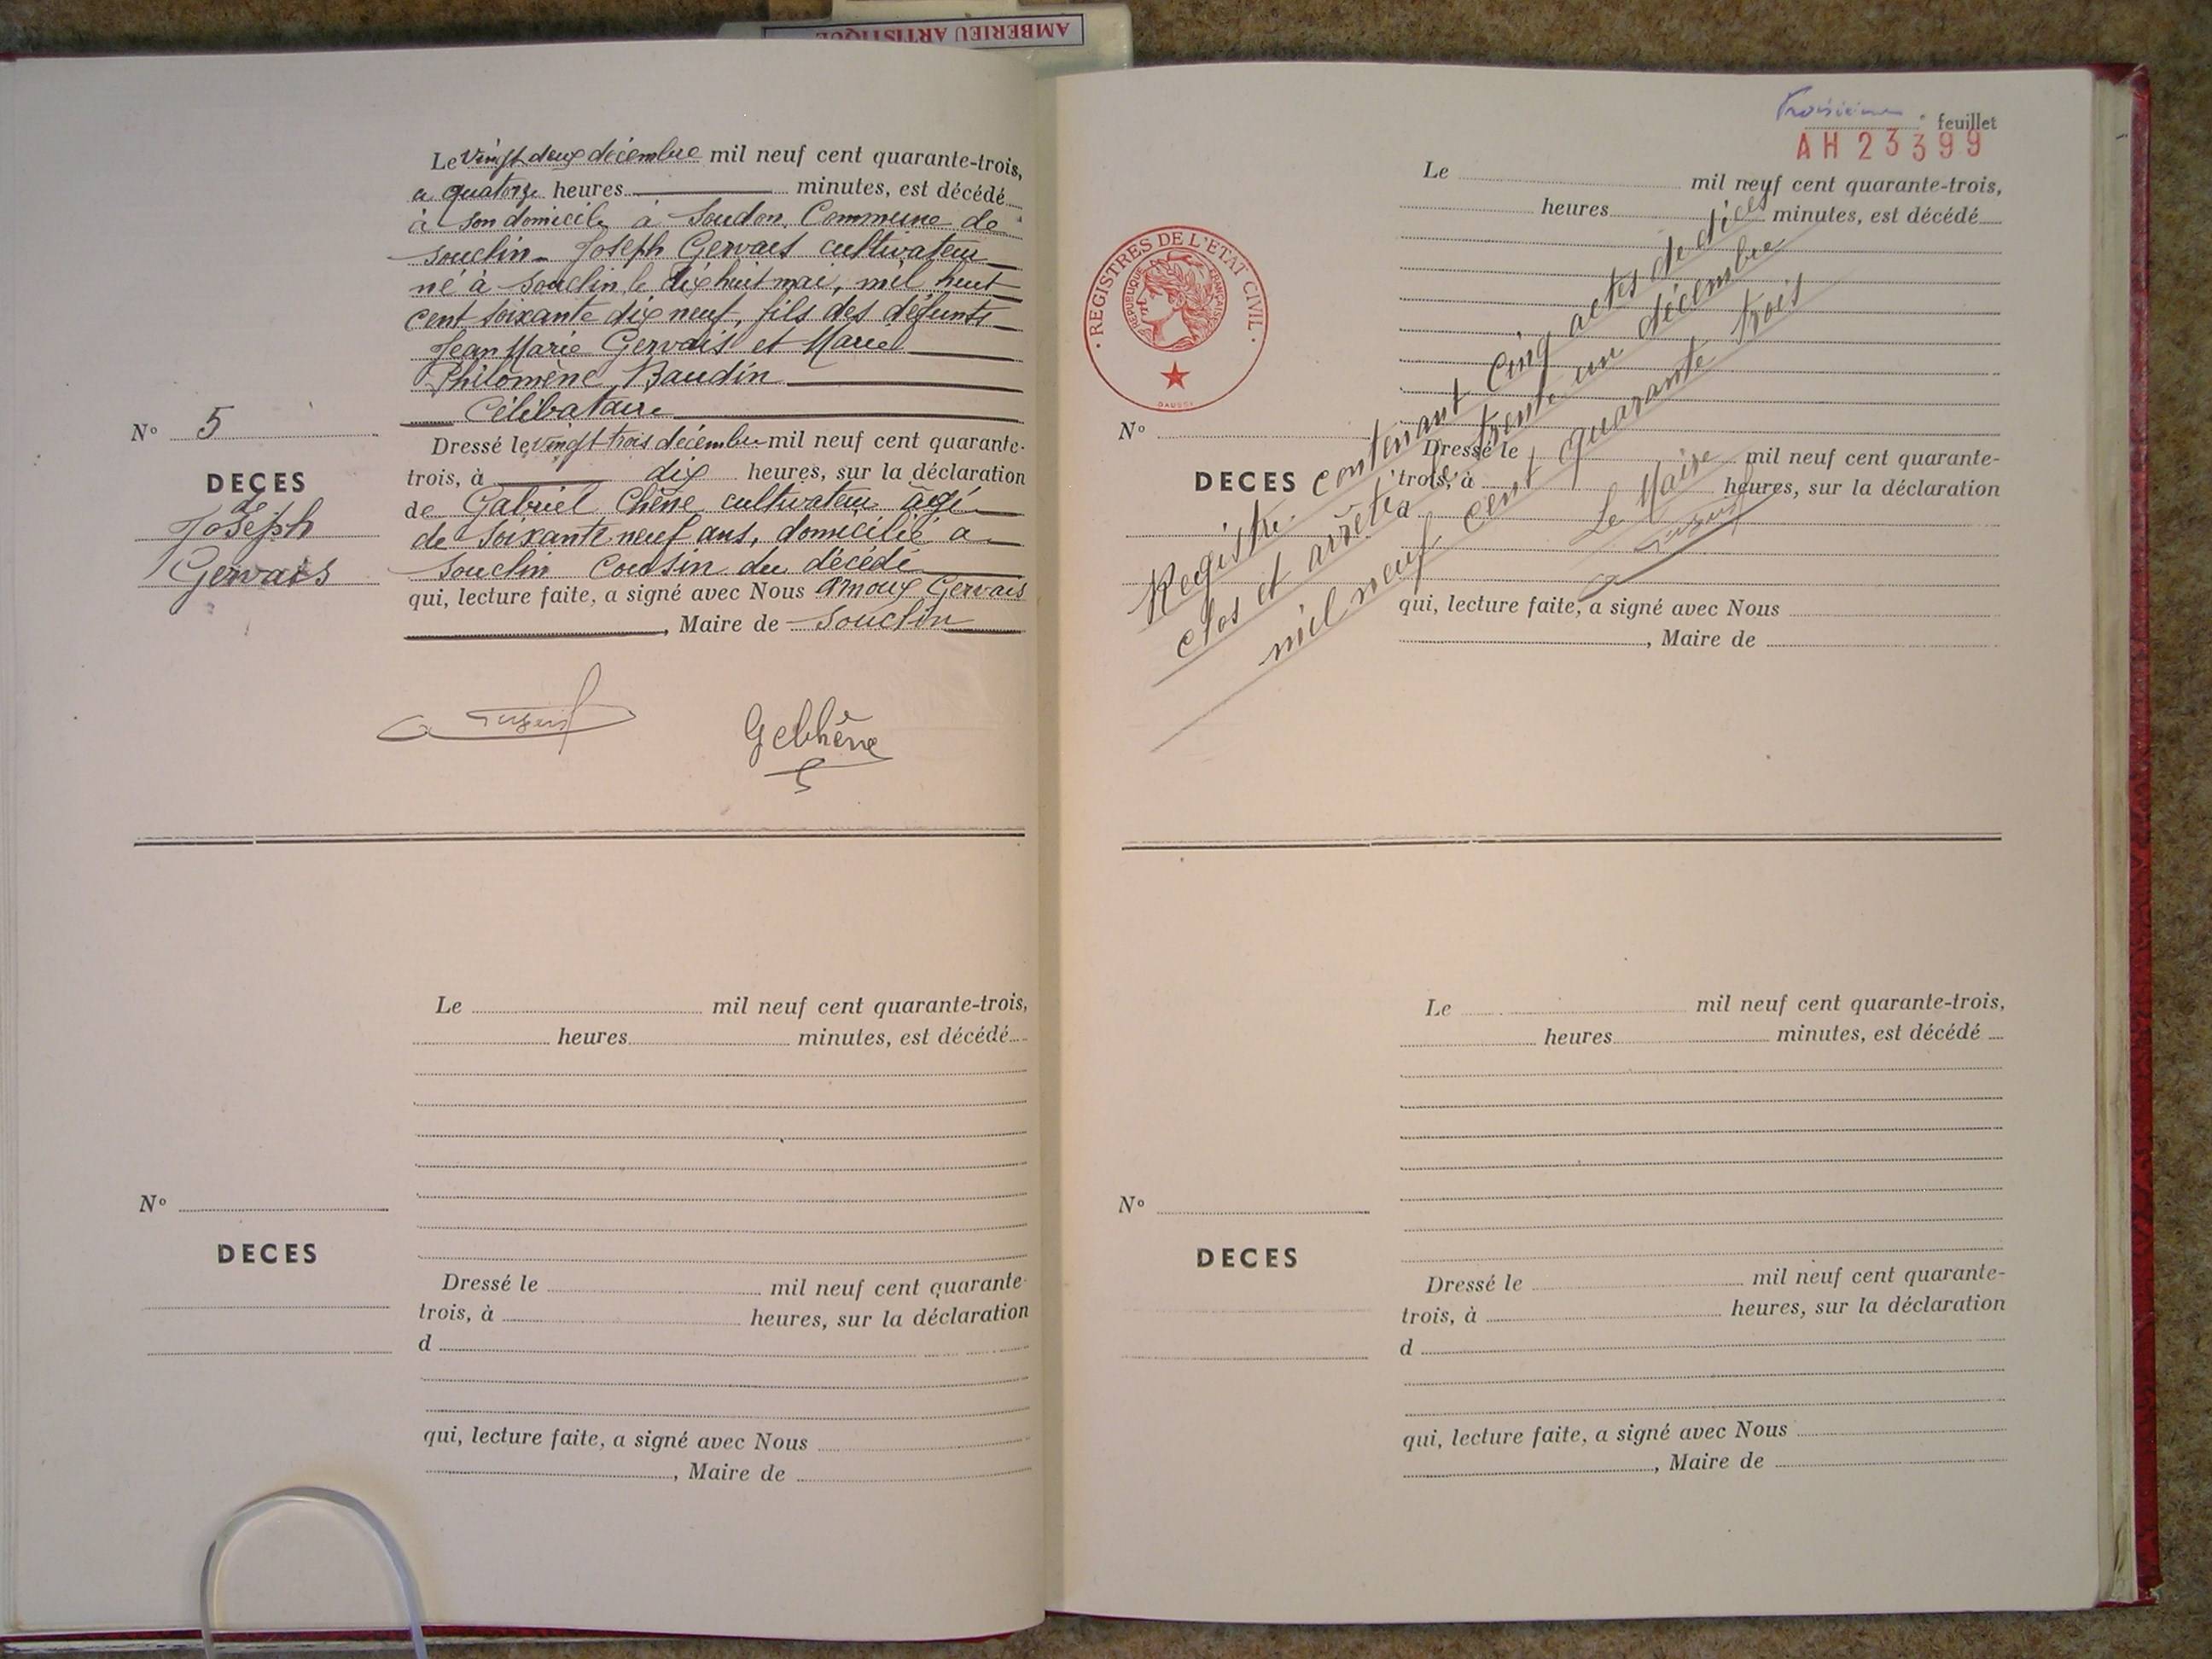 AMBERIEU ARTISTIQUE
Le vingt deux décembre mil neuf cent quarante-trois,
a quatorze heures minutes, est décédé
à son domicile à Soudon, Commune de
Souclin. Joseph Gervais cultivateur
né à Souclin, le dix huit mai, mil huit
cent soixante dix neuf, fils des défunts
Jean Marie Gervais et Marie
Philomène Baudin
Célibataire
Nº 5
DECES
de
Joseph
Gervais
Dressé le vingt trois décembre mil neuf cent quarante-
trois, à dix heures, sur la déclaration
de Gabriel Chêne cultivateur âgé
de soixante neuf ans, domicilié a
Souclin Cousin du décédé
qui, lecture faite, a signé avec Nous Arnoux Gervais
, Maire de Souclin
GChêne
Le mil neuf cent quarante-trois,
heures minutes, est décédé
Nº
DECES
Dressé le mil neuf cent quarante-
trois, à heures, sur la déclaration
d
qui, lecture faite, a signé avec Nous
, Maire de
Troisième feuillet
AH 23399
REGISTRES DE L'ETAT CIVIL
REPUBLIQUE FRANÇAISE
Le mil neuf cent quarante-trois,
heures minutes, est décédé
Nº
DECES
Dressé le mil neuf cent quarante-
trois, à heures, sur la déclaration
d
qui, lecture faite, a signé avec Nous
, Maire de
Registre contenant Cinq actes de décès
clos et arrêté le trente un décembre
mil neuf cent quarante trois
Le Maire
Le mil neuf cent quarante-trois,
heures minutes, est décédé
Nº
DECES
Dressé le mil neuf cent quarante-
trois, à heures, sur la déclaration
d
qui, lecture faite, a signé avec Nous
, Maire de